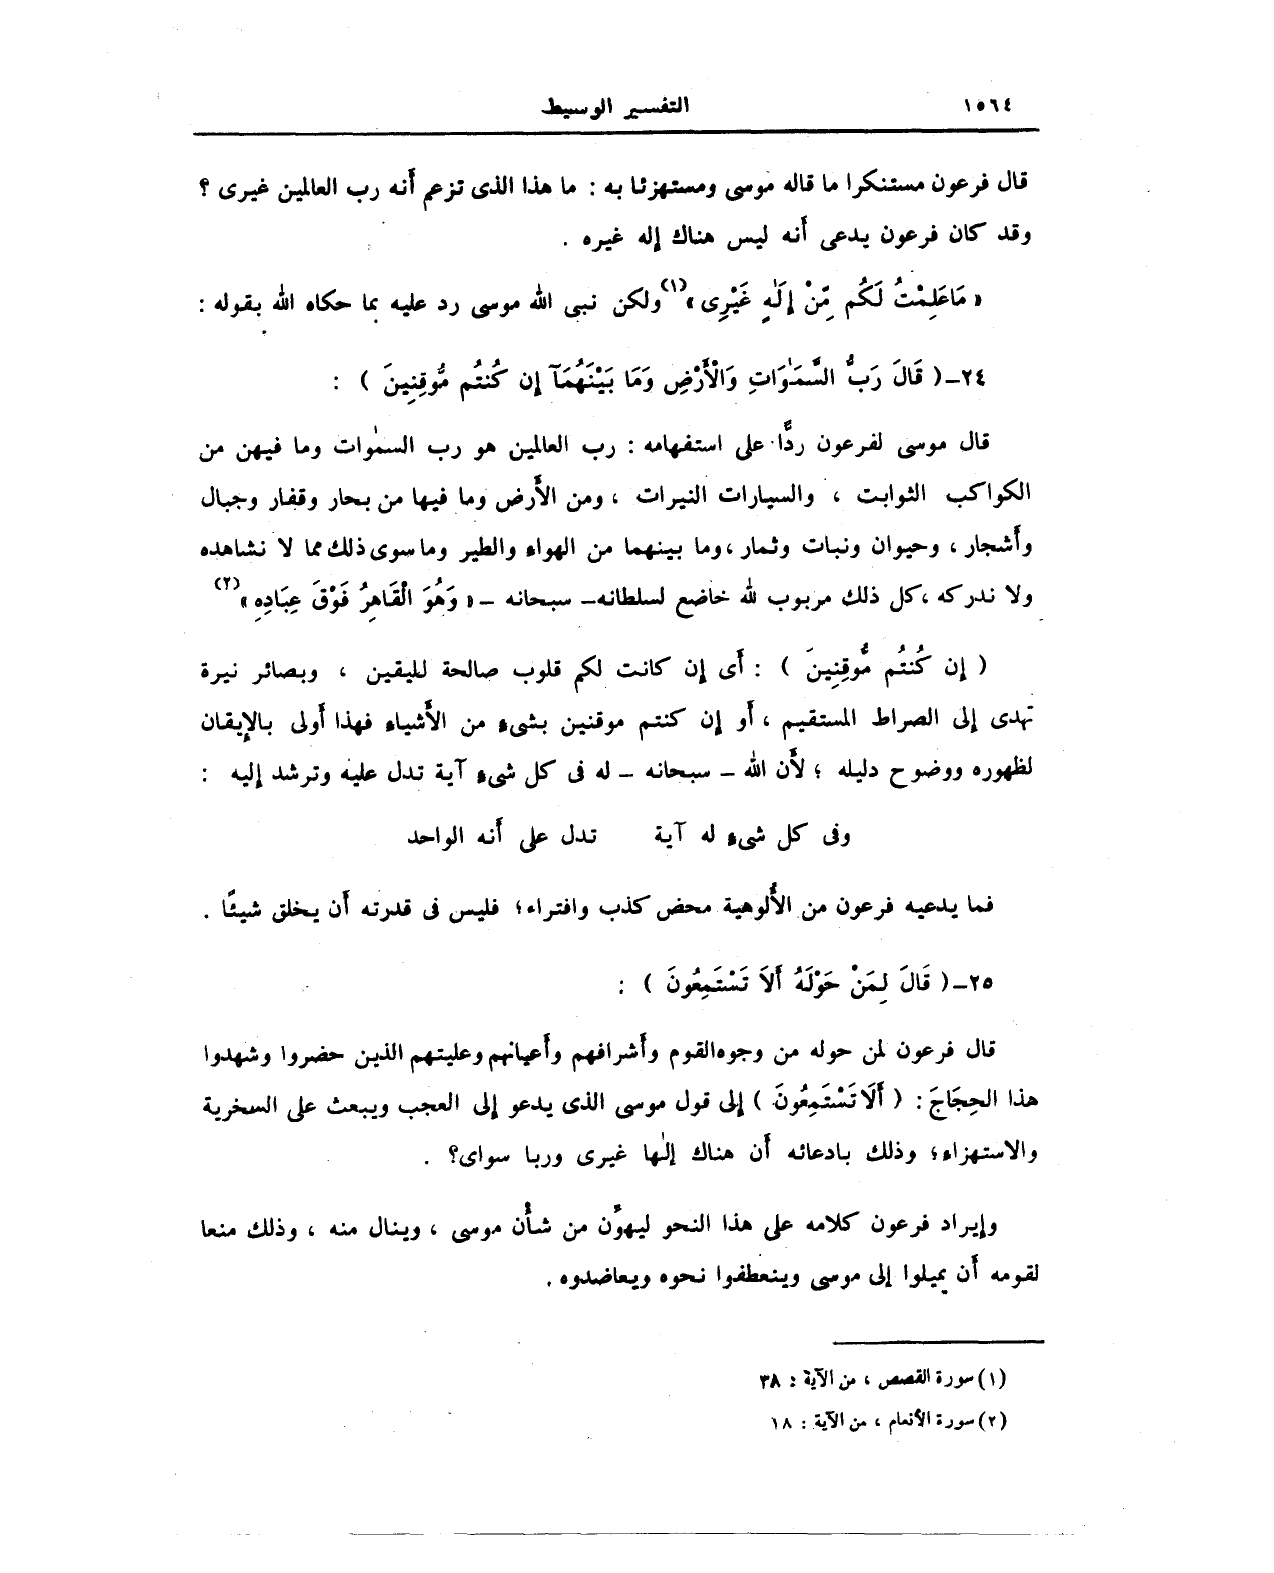 ١٥٦٤ التفسير الوسيط
قال فرعون مستنكرا ما قاله موسى ومستهزئا به : ما هذا الذى تزعم أنه رب العالمين غيرى ؟
وقد كان فرعون يدعى أنه ليس هناك إله غيره .
« مَاعَلِمْتُ لَكُم مِّنْ إِلَٰهٍ غَيْرِى »(١) ولكن نبى الله موسى رد عليه بما حكاه الله بقوله :
٢٤-( قَالَ رَبُّ السَّمَٰوَاتِ وَالْأَرْضِ وَمَا بَيْنَهُمَآ إِن كُنتُم مُّوقِنِينَ ) :
قال موسى لفرعون ردًّا على استفهامه : رب العالمين هو رب السمٰوات وما فيهن من
الكواكب الثوابت ، والسيارات النيرات ، ومن الأَرض وما فيها من بحار وقفار وجبال
وأَشجار ، وحيوان ونبات وثمار ،وما بينهما من الهواء والطير وماسوى ذلك مما لا نشاهده
ولا ندركه ،كل ذلك مربوب لله خاضع لسلطانه- سبحانه - « وَهُوَ الْقَاهِرُ فَوْقَ عِبَادِهِ »(٢)
( إِن كُنتُم مُّوقِنِينَ ) : أَى إِن كانت لكم قلوب صالحة لليقين ، وبصائر نيرة
تهدى إلى الصراط المستقيم ، أَو إِن كنتم موقنين بشىء من الأَشياء فهذا أَولى بالإيقان
لظهوره ووضوح دليله ؛ لأَن الله - سبحانه - له فى كل شىء آية تدل عليه وترشد إليه :
وفى كل شىء له آية تدل على أَنه الواحد
فما يدعيه فرعون من الأُلوهية محض كذب وافتراء؛ فليس فى قدرته أَن يخلق شيئًا .
٢٥-( قَالَ لِمَنْ حَوْلَهُ أَلاَ تَسْتَمِعُونَ ) :
قال فرعون لمن حوله من وجوه القوم وأَشرافهم وأَعيانهم وعليتهم الذين حضروا وشهدوا
هذا الحِجَاجَ : ( أَلَا تَسْتَمِعُونَ ) إلى قول موسى الذى يدعو إلى العجب ويبعث على السخرية
والاستهزاء؛ وذلك بادعائه أَن هناك إلٰها غيرى وربا سواى؟ .
وإيراد فرعون كلامه على هذا النحو ليهوِّن من شأْن موسى ، وينال منه ، وذلك منعا
لقومه أَن يميلوا إلى موسى وينعطفوا نحوه ويعاضدوه .
(١) سورة القصص ، من الآية : ٣٨
(٢) سورة الأنعام ، من الآية : ١٨